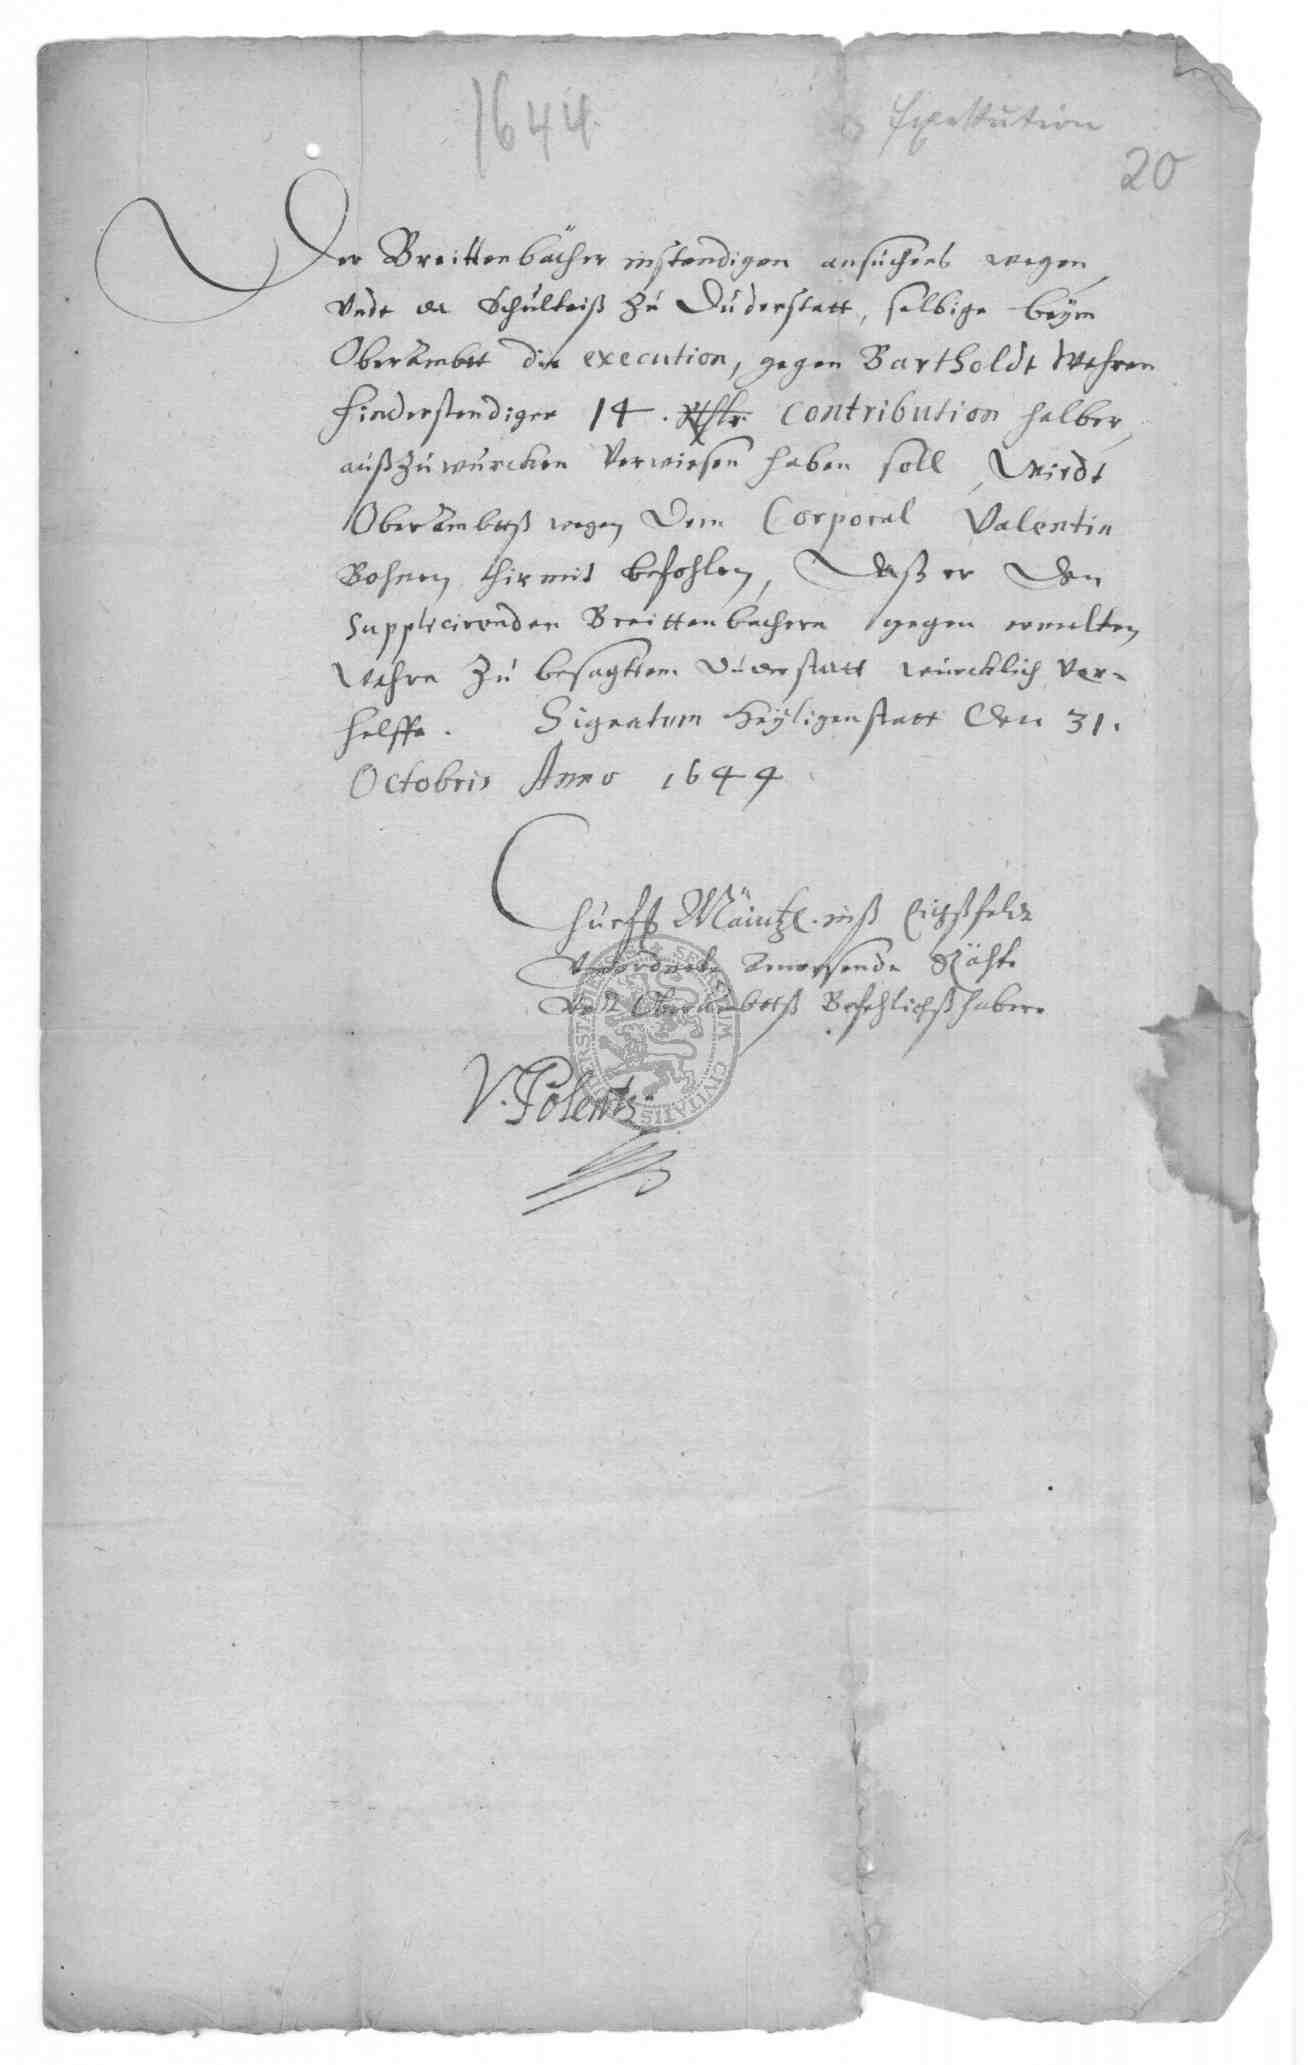 1644.
Exekution
20
Der Breittenbächer instendigen ansuchens wegen,
Undt der Schulteiß zu Duderstatt, selbige beÿm
OberAmbtt die execution, gegen Bartholdt Wehren
hinderstendiger 14. Rthlr. contribution halber,
außzuwürcken verwiesen haben soll, Wirdt
OberAmbttß wegen dem Corporal Valentin
Bohnen hiermit befohlen, Daß er den
Supplicirenden Breittenbachern gegen ermelten
Wehre zu besagttem Duderstatt würcklich ver-
helffe. Signatum Heÿligenstatt den 31.
Octobris Anno 1644
Churf. Mäintz. inß Eichßfeldt
Verordnete Anwesende Räthe
Undt Oberambttß Befehlichßhabere
SIGILLUM CIVITATIS DUDERSTADIENSIS
V. Polentz